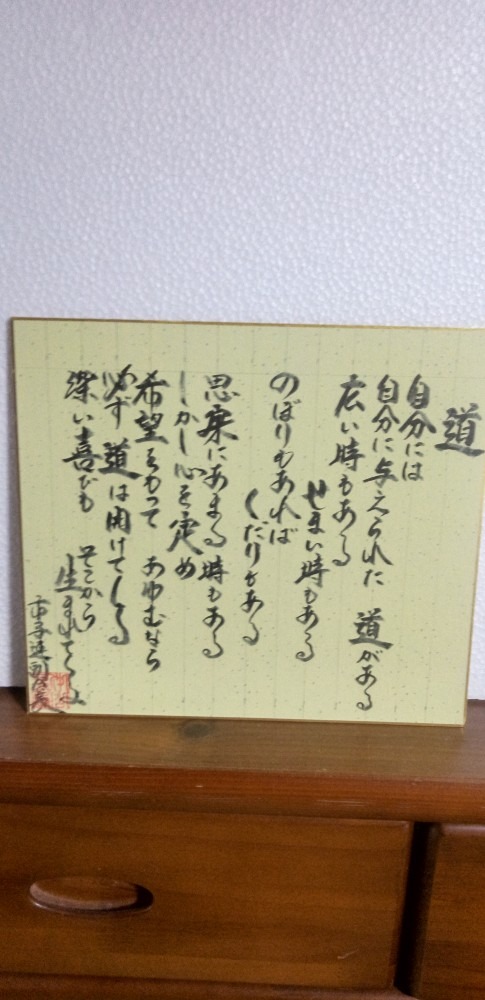 道
自分には
自分に与えられた　道がある
広い時もある
せまい時もある
のぼりもあれば
くだりもある
思案にあまる時もある
しかし心を定め
希望をもって　あゆむなら
必ず　道は開けてくる
深い喜びも　そこから
生まれてくる